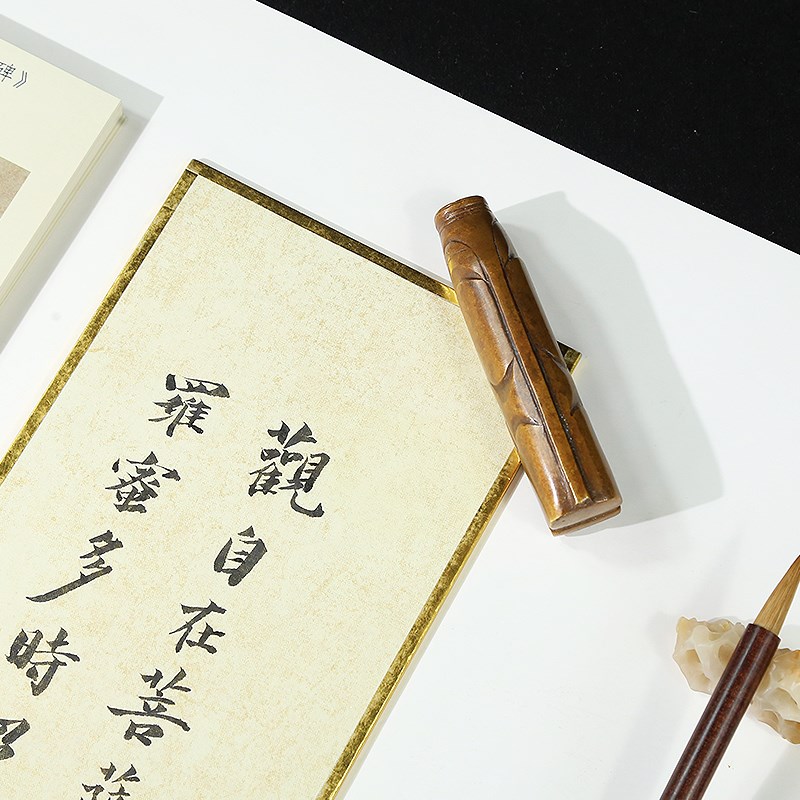 觀自在菩
羅蜜多時